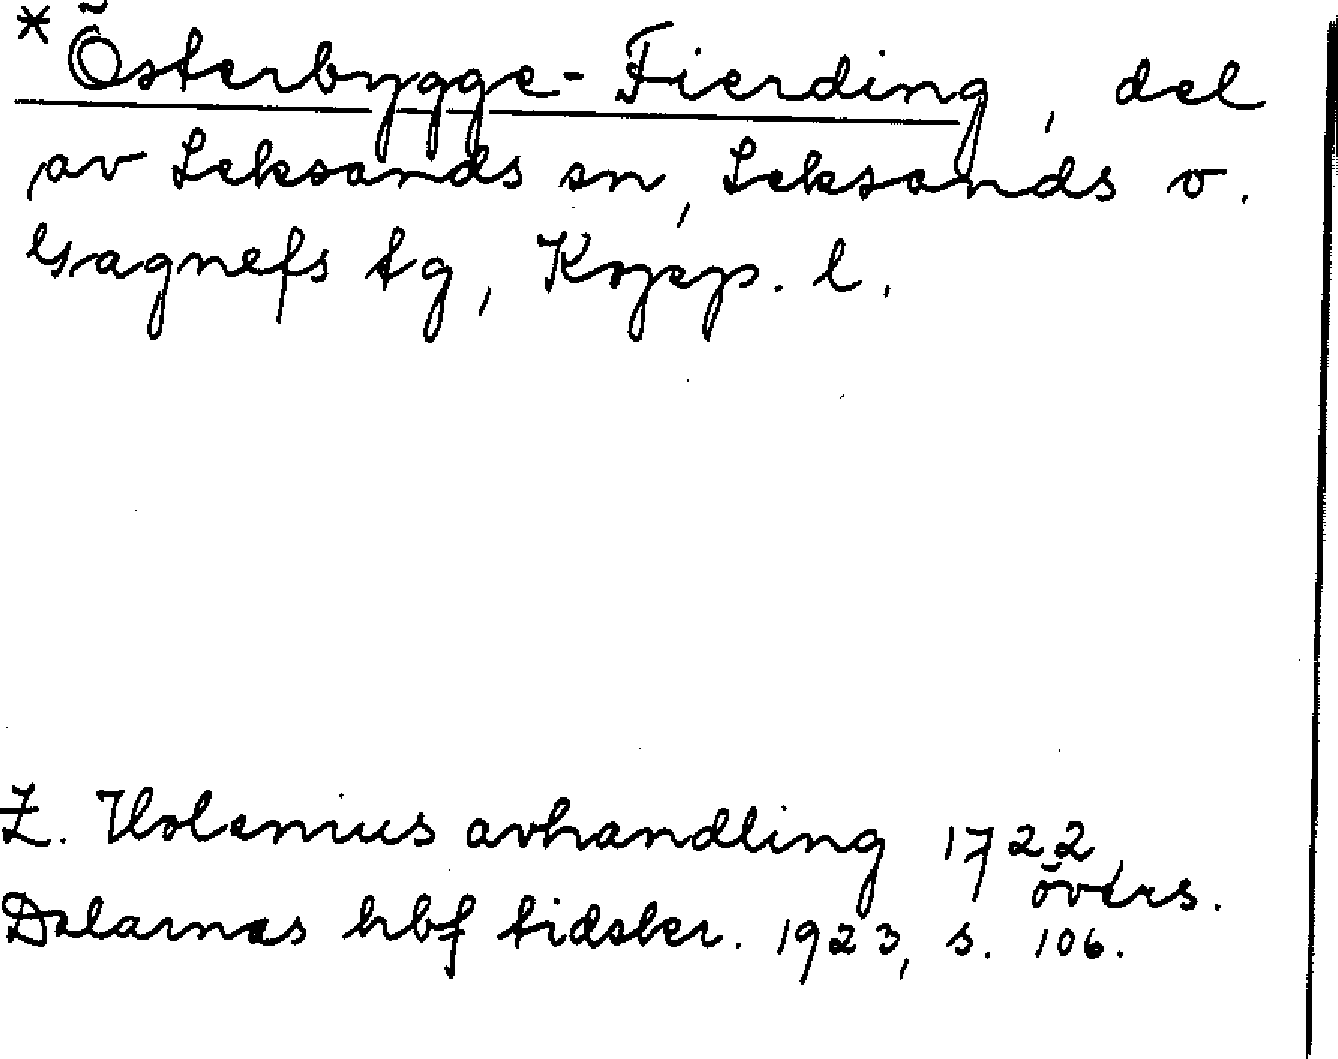 *Österbygge-Fierding, del
av Leksands sn, Leksands o.
Gagnefs tg, Kopp. l.
Z. Holenius avhandling 1722,
övers.
Dalarnas hbf tidskr. 1923, s. 106.